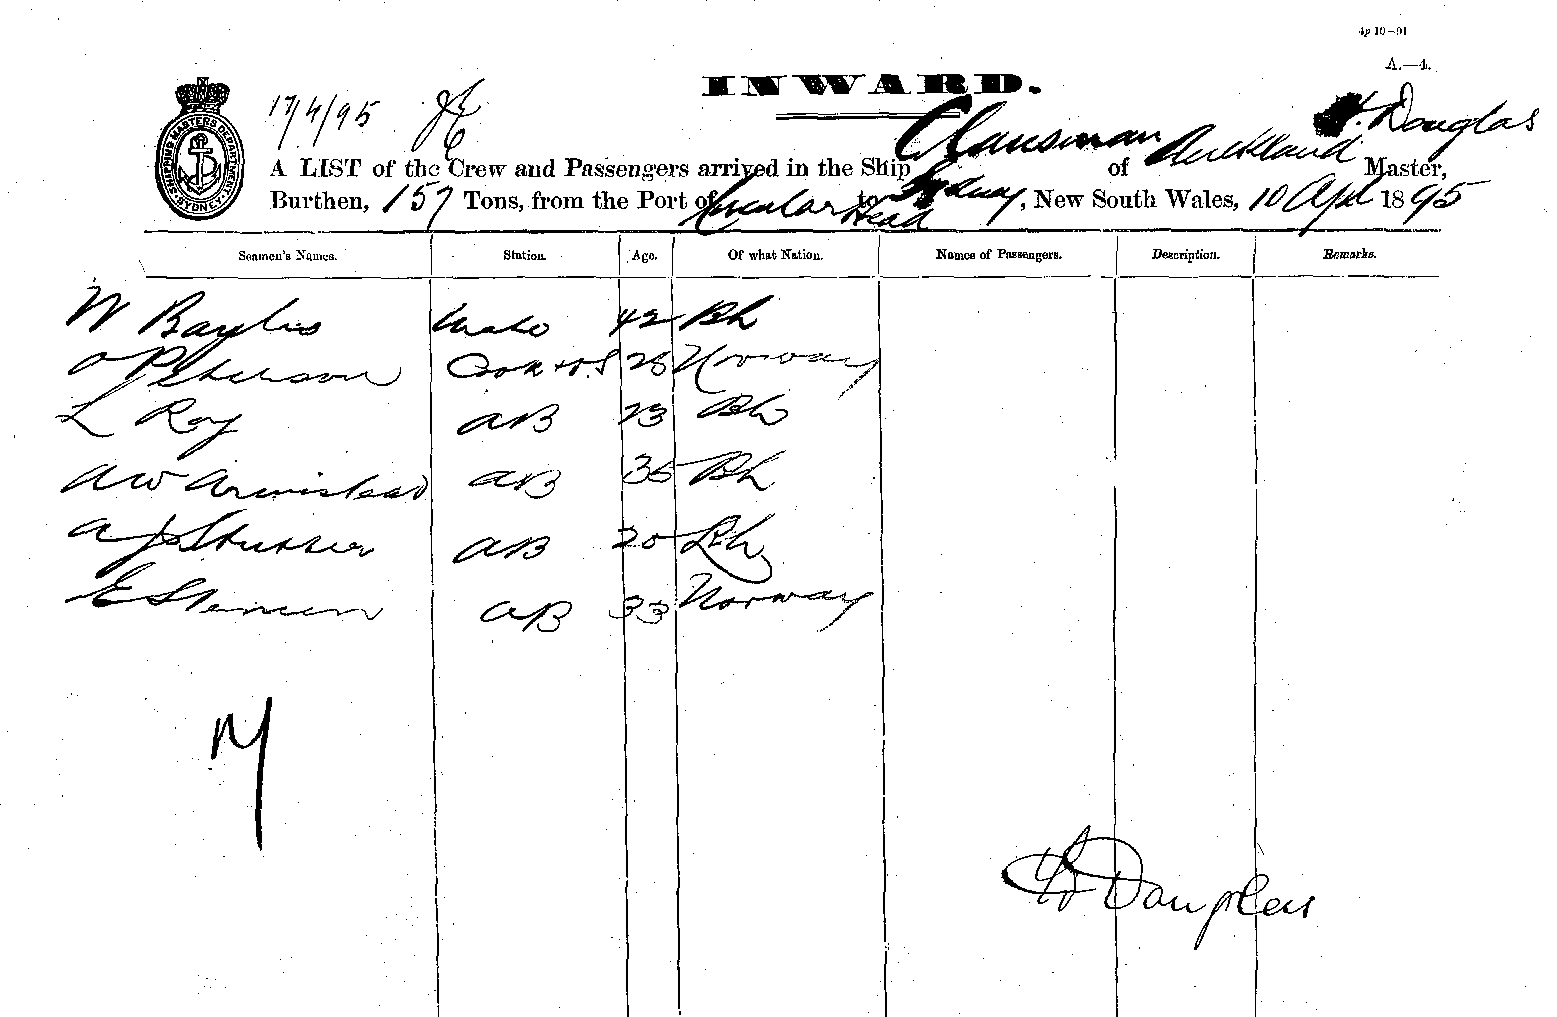 4p 10—91
A.—4.
INWARD.
17/4/95
SHIPPING MASTERS DEPARTMENT SYDNEY
A LIST of the Crew and Passengers arrived in the Ship Clansman of Auckland H. Douglas Master,
Burthen, 157 Tons, from the Port of Circular Head to Sydney, New South Wales, 10 Apl 1895
Seamen's Names. Station. Age. Of what Nation. Names of Passengers. Description. Remarks.
W Baylis Mate 42 Bh
O Peterson Cook + O.S 28 Norway
L Roy AB 23 Bh
A W Armistead AB 35 Bh
A J AB 20
E AB 33 Norway
H Douglas